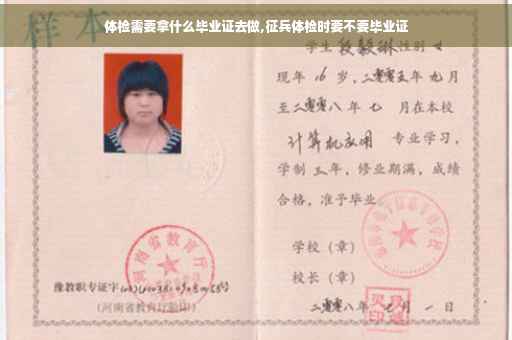 体检需要拿什么毕业证去做,征兵体检时要不要毕业证
样本
学生段毅琳性别女
现年16岁，二零零五年九月
至二零零八年七月在本校
计算机应用专业学习，
学制三年，修业期满，成绩
合格，准予毕业。
学校（章）
校长（章）
二零零八年 月一日
河南省教育厅
豫教职专证字
(河南省教育厅验印)